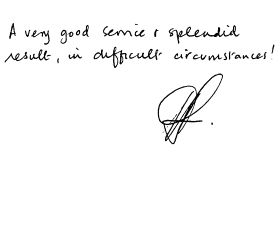 A very good service & splendid
result, in difficult circumstances!